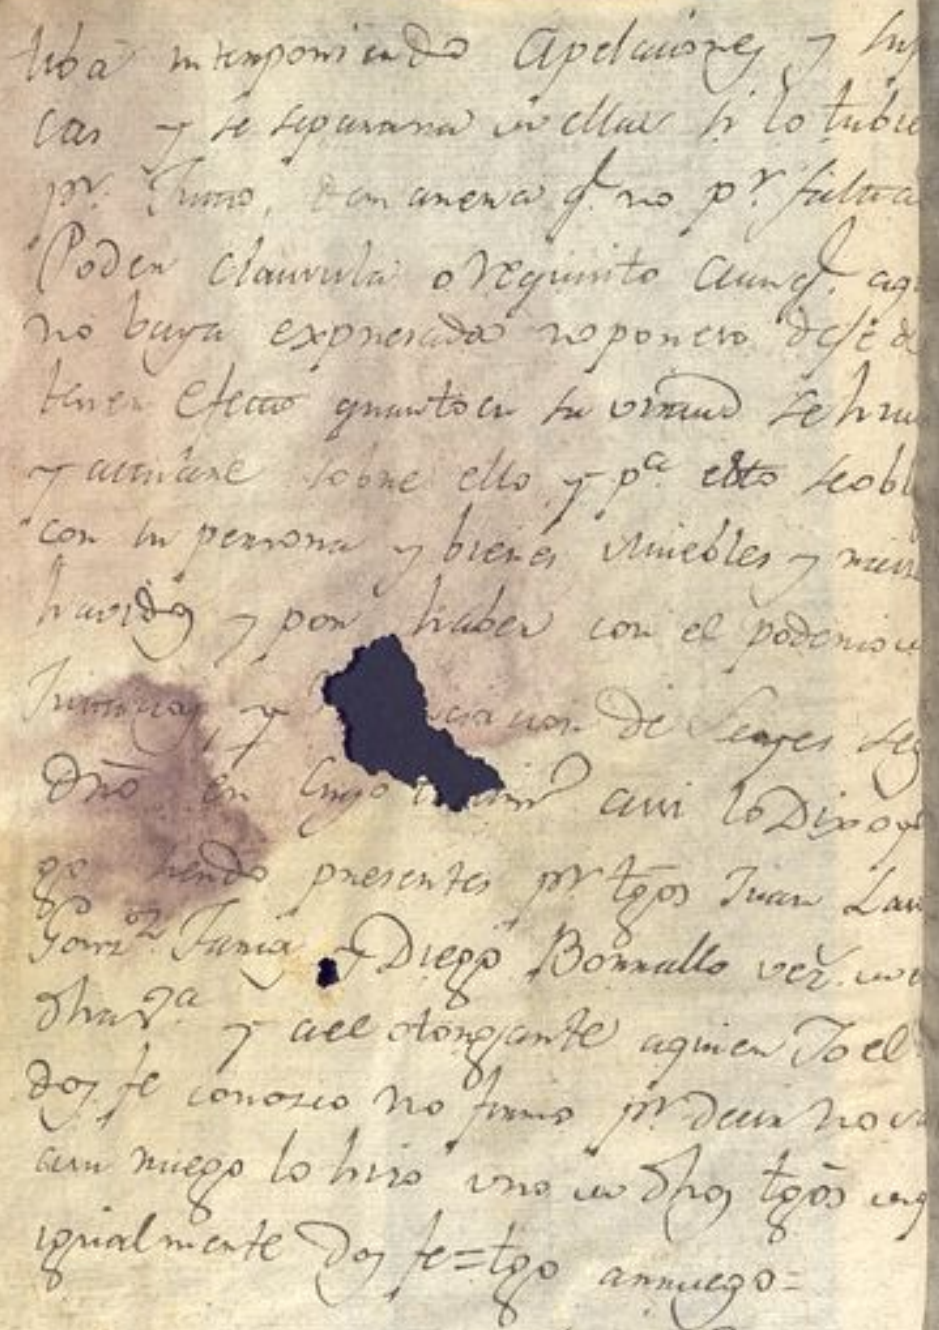 tiba interponiendo Apelaciones y sup
cas y se separara de ellas si lo tubie
pr. Justo, de manera q. no pr. falta
Poder clausula o requisito aunq. aqi
no baya expresado no por eso deje de
tener efecto quanto en su virtud se hi
y actuare sobre ello y pa. esto se obl
con su persona y bienes muebles y raic
havidos y por haber con el poderio de
Justicias y ciacion de Leyes seg
dro. en cuyo testim.o assi lo Dixo y o
go siendo presentes pr. tgos Juan Lau
Gonz.ez y Diego Borrallo vez. de
dha y ael otorgante aquien Yo el
doy fe conosco no firmo pr. decir no sa
asu ruego lo hizo uno de dhos tgos de q
igualmente doy fe = tgo arruego =